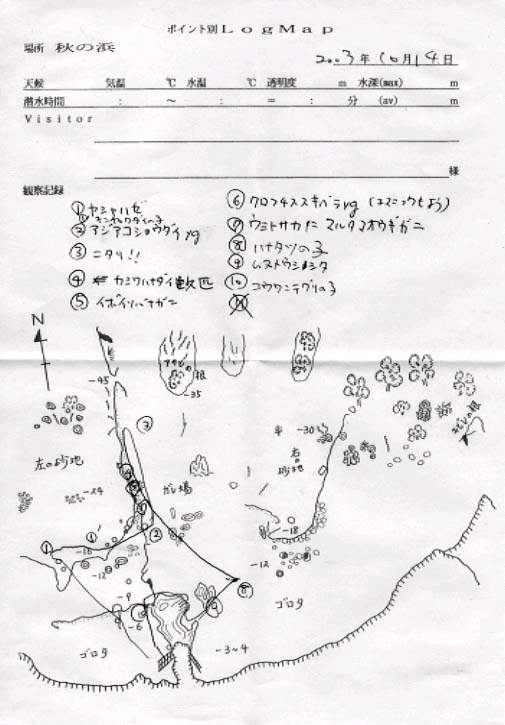 ポイント別 LogMap
場所 秋の浜
2003年10月14日
天候 気温 ℃ 水温 ℃ 透明度 m 水深(max) m
潜水時間 : ～ : = : 分 (av) m
Visitor
様
観察記録
① ヤシャハゼ
② アジアコショウダイ yg
③ ニタリ!!
④ カシワハナダイ
⑤ イボイソバナガニ
⑥ クロフチススキベラyg
⑦ ウミトサカに マルタマオウギガニ
⑧ ハナタツの子
⑨ ムストウショシタ
⑩ コウワンテグリの子
N
-45
根
-35
左の砂地
-24
ガレ場
-30
右の砂地
-18
-16
-12
-12
-9
-6
-3~4
ゴロタ
ゴロタ